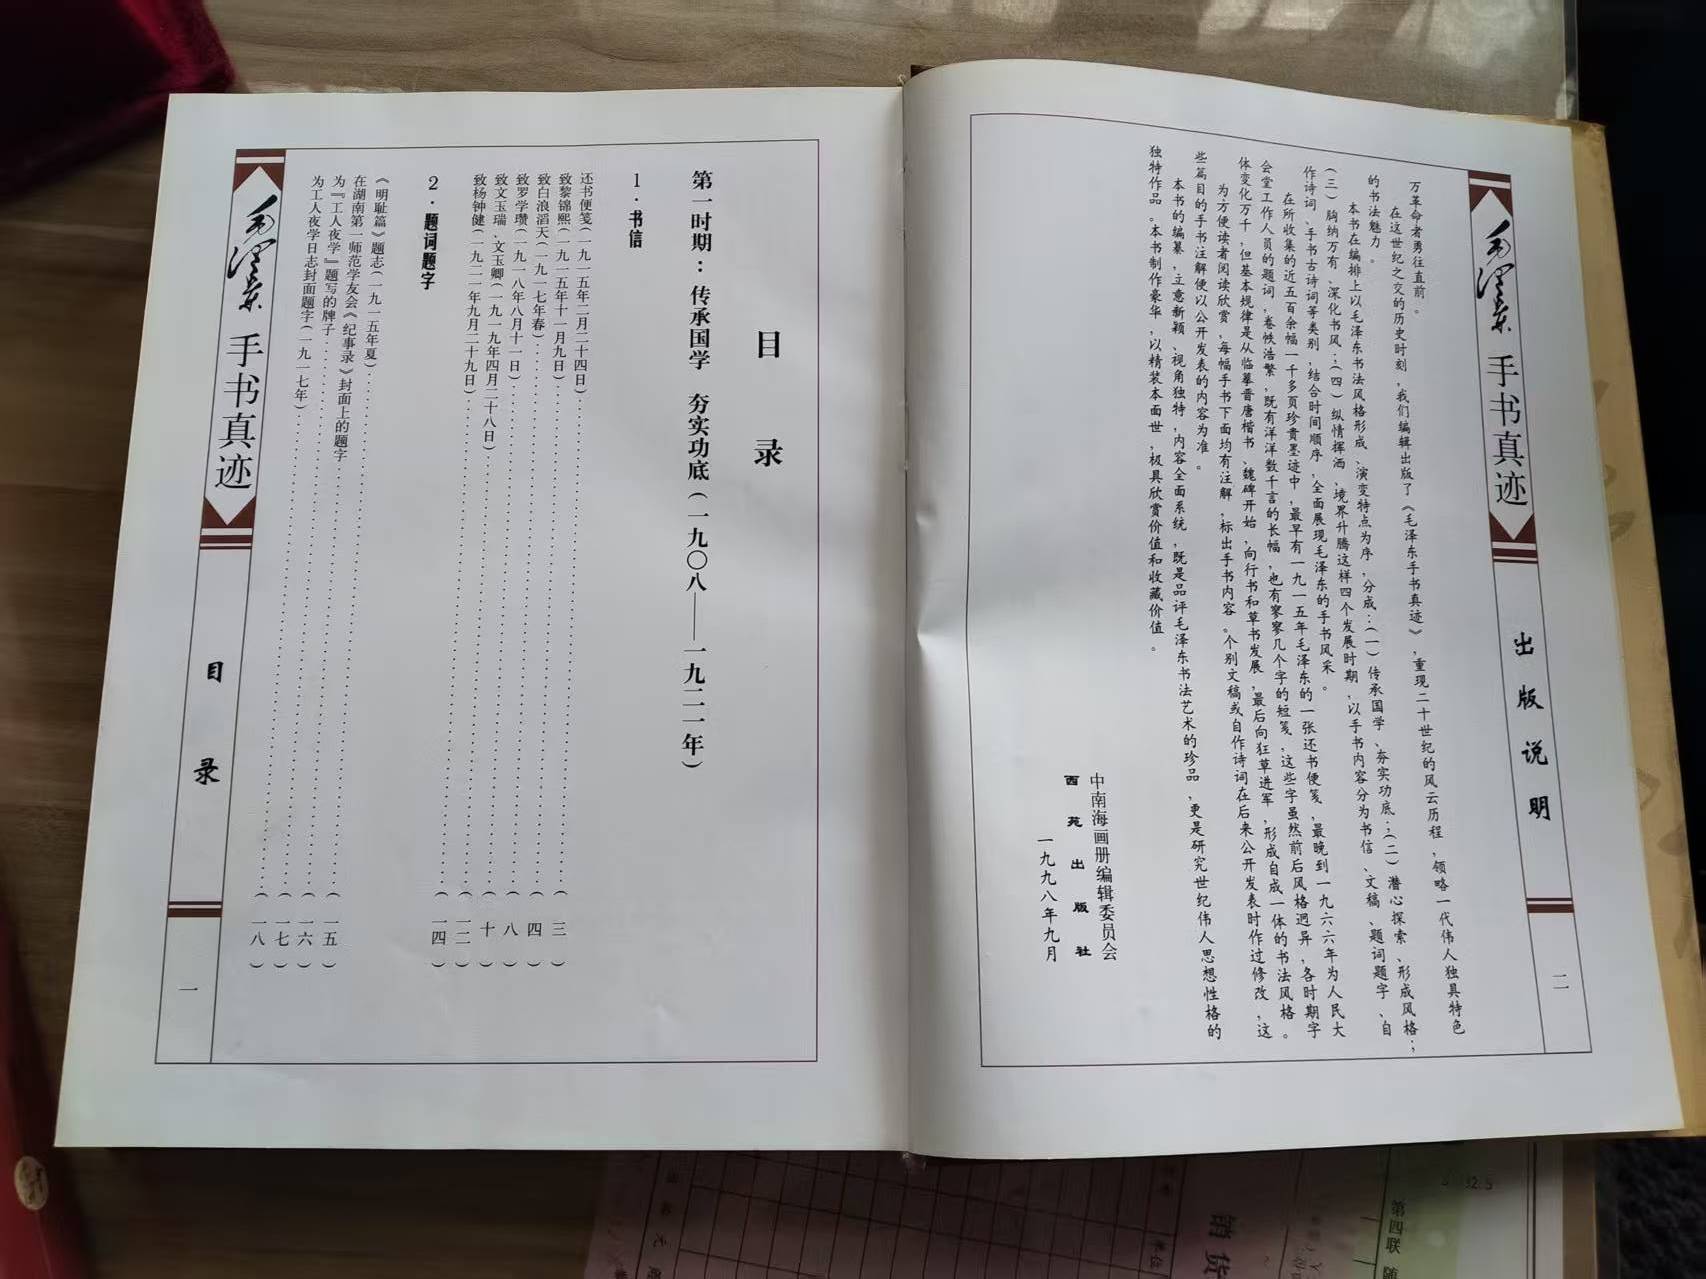 毛泽东 手书真迹
出版说明
二
万革命者勇往直前。
在这世纪之交的历史时刻，我们编辑出版了《毛泽东手书真迹》，重现二十世纪的风云历程，领略一代伟人独具特色
的书法魅力。
本书在编排上以毛泽东书法风格形成、演变特点为序，分成：（一）传承国学、夯实功底；（二）潜心探索、形成风格；
（三）胸纳万有、深化书风；（四）纵情挥洒、境界升腾这样四个发展时期，以手书内容分为书信、文稿、题词题字、自
作诗词、手书古诗词等类别，结合时间顺序，全面展现毛泽东的手书风采。
在所收集的近五百余幅一千多页珍贵墨迹中，最早有一九一五年毛泽东的一张还书便笺，最晚到一九六六年为人民大
会堂工作人员的题词，卷帙浩繁，既有洋洋数千言的长幅，也有寥寥几个字的短笺，这些字虽然前后风格迥异，各时期字
体变化万千，但基本规律是从临摹晋唐楷书、魏碑开始，向行书和草书发展，最后向狂草进军，形成自成一体的书法风格。
为方便读者阅读欣赏，每幅手书下面均有注解，标出手书内容。个别文稿或自作诗词在后来公开发表时作过修改，这
些篇目的手书注解便以公开发表的内容为准。
本书的编纂，立意新颖、视角独特，内容全面系统，既是品评毛泽东书法艺术的珍品，更是研究世纪伟人思想性格的
独特作品。本书制作豪华，以精装本面世，极具欣赏价值和收藏价值。
中南海画册编辑委员会
西苑出版社
一九九八年九月
目 录
第一时期：传承国学 夯实功底(一九〇八——一九二一年)
1·书信
还书便笺(一九一五年二月二十四日)……(三)
致黎锦熙(一九一五年十一月九日)……(四)
致白浪滔天(一九一七年春)……(八)
致罗学瓒(一九一八年八月十一日)……(十)
致文玉瑞、文玉卿(一九一九年四月二十八日)……(一二)
致杨钟健(一九二一年九月二十九日)……(一四)
2·题词题字
《明耻篇》题志(一九一五年夏)……(一五)
在湖南第一师范学友会《纪事录》封面上的题字……(一六)
为『工人夜学』题写的牌子……(一七)
为工人夜学日志封面题字(一九一七年)……(一八)
毛泽东 手书真迹
目录
一
第四联 随
销 货
单位